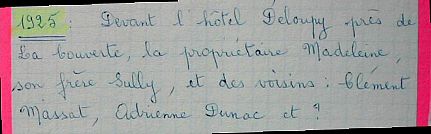 1925 : Devant l'hôtel Deloupy près de
La Couverte, la propriétaire Madeleine,
son frère Sully, et des voisins : Clément
Massat, Adrienne Dunac et ?